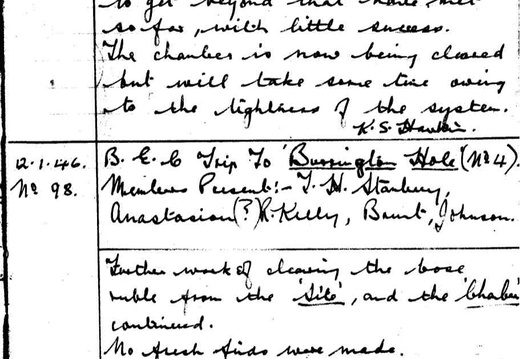 to get beyond that have met
so far, with little success.
The chamber is now being cleared
but will take some time owing
to the tightness of the system.
K. S. Hawkins.
12.1.46.
No 98.
B. E. C Trip To 'Burrington Hole' (No 4).
Members Present:- T. H. Stanbury,
Anastasiou (?) R. Kelly, Baunt, Johnson.
Further work of clearing the loose
ruble from the 'Site', and the 'Chamber
continued.
No fresh finds were made.